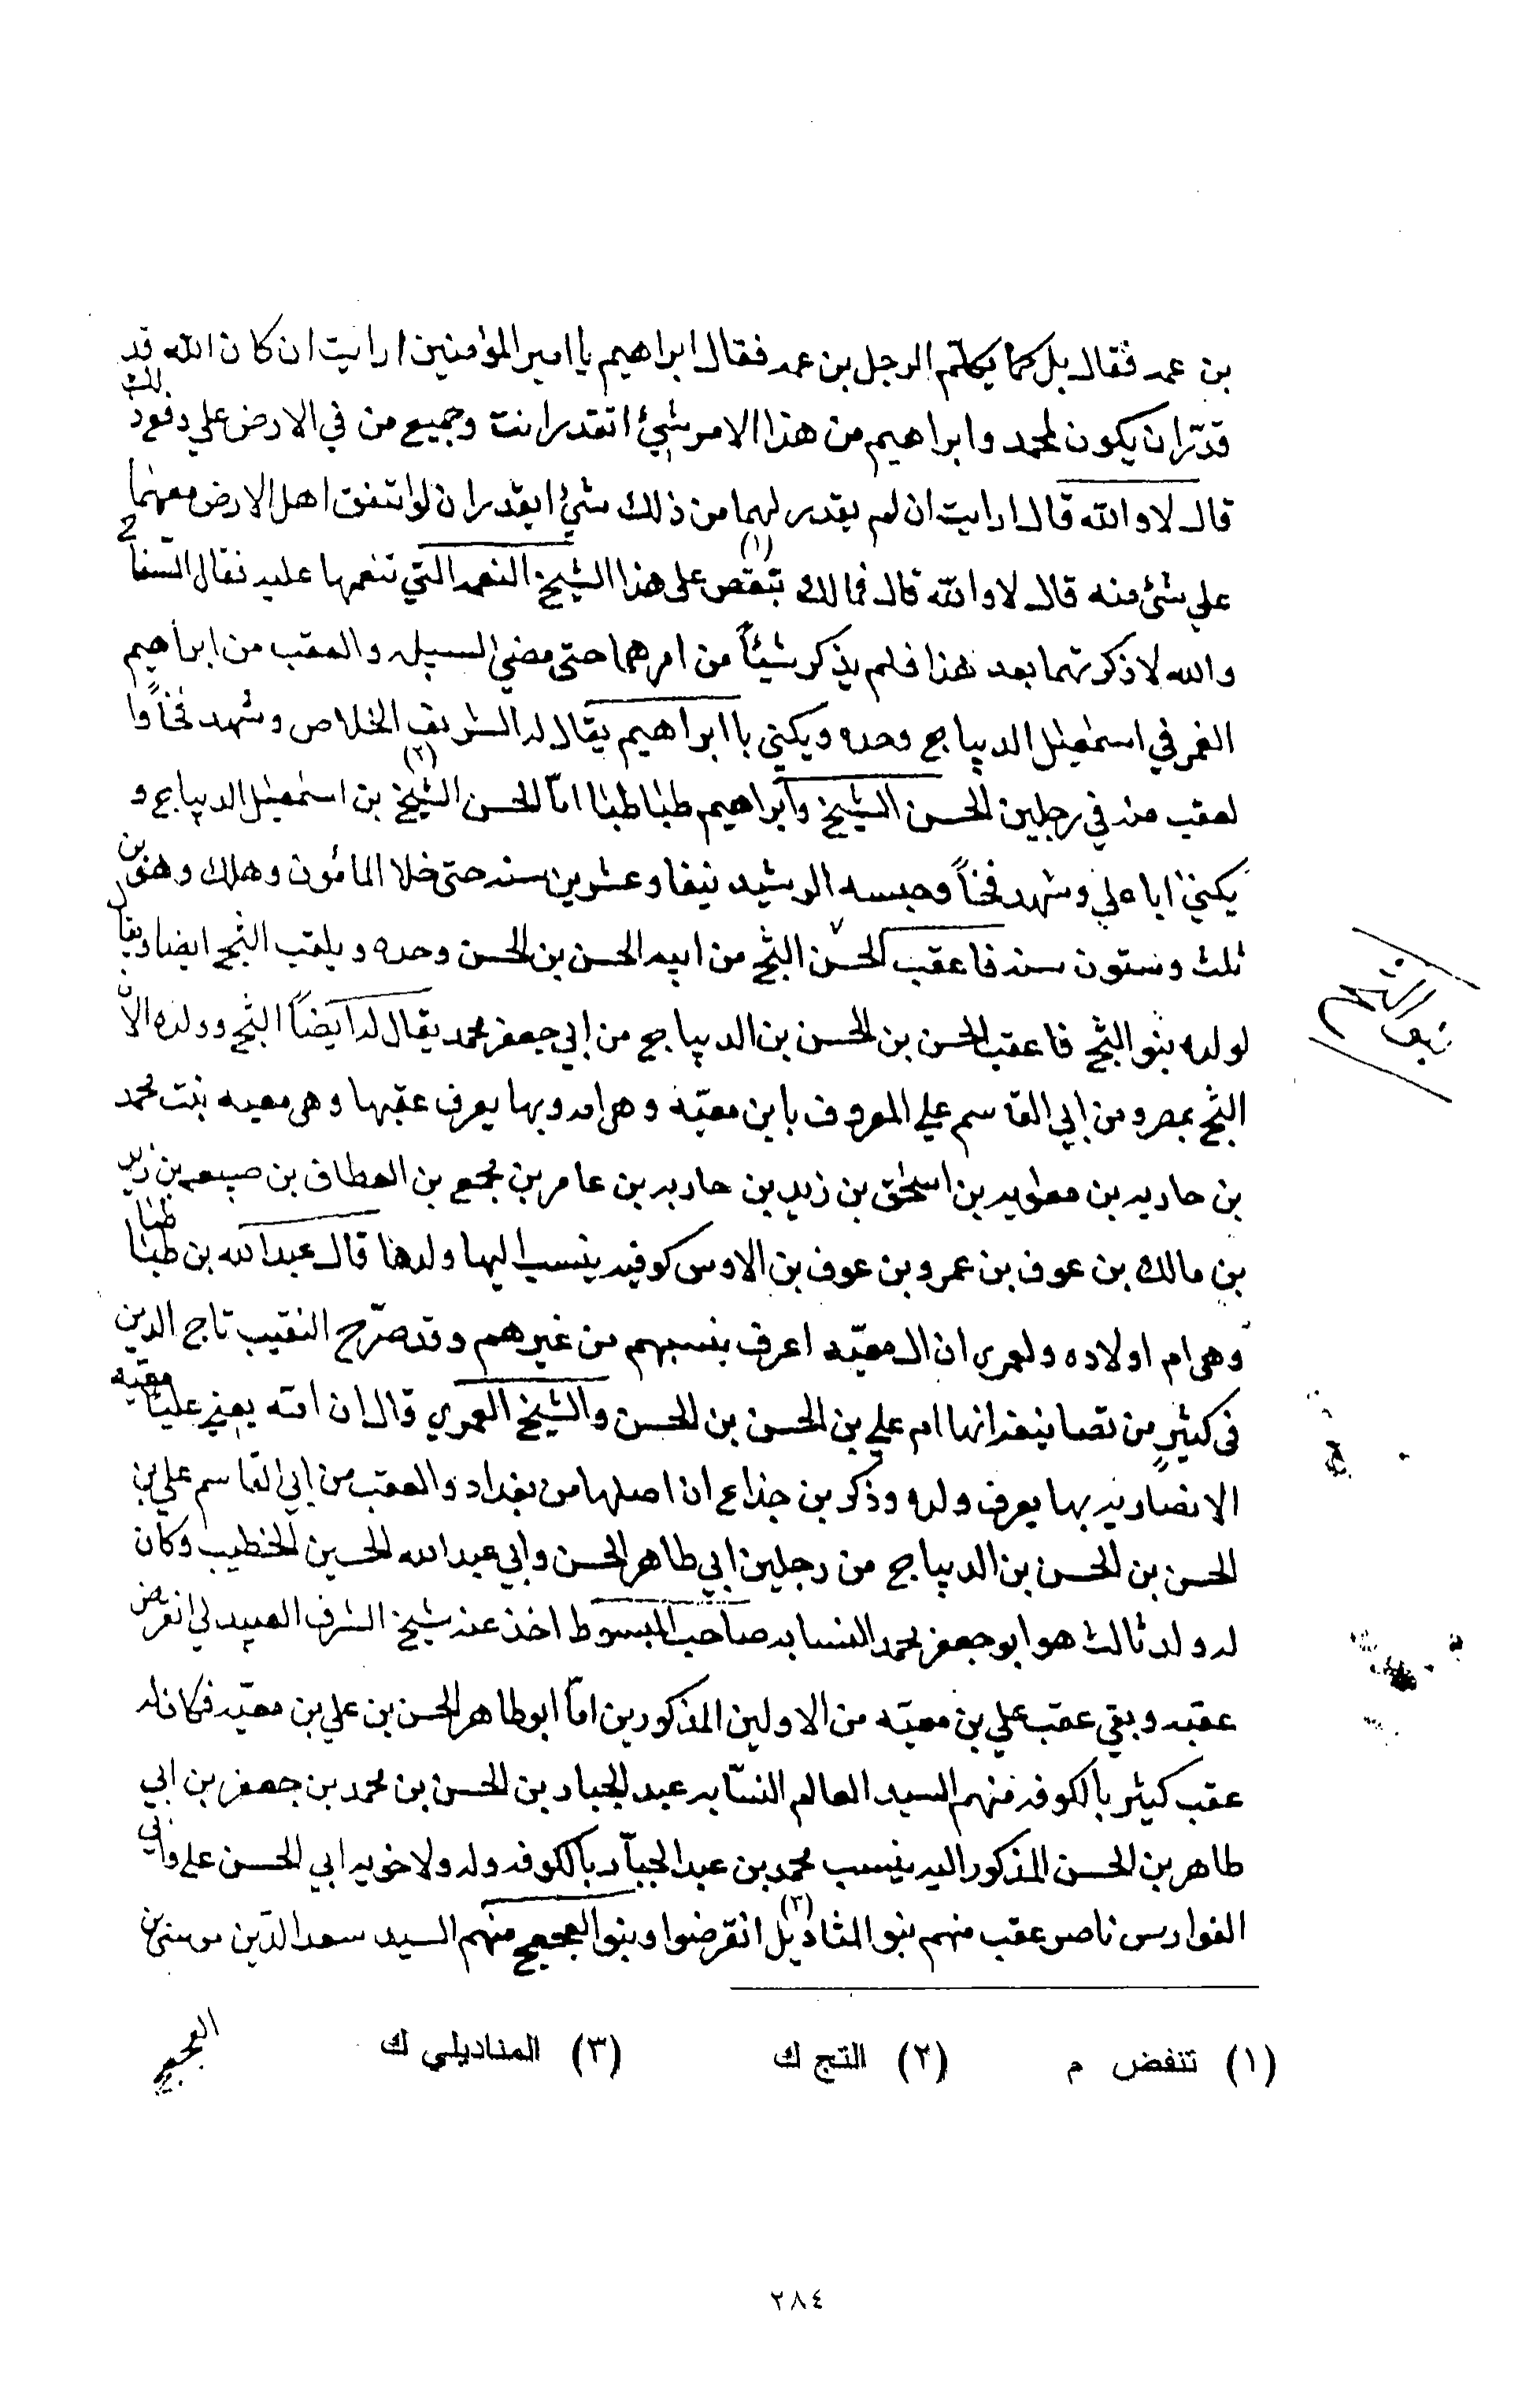 بن عمه فقال بل كما يكلم الرجل بن عمه فقال ابراهيم يا امير المؤمنين ارايت ان كان الله قد
قدّر ان يكون لمحمد وابراهيم من هذا الامر شئ اتقدر انت وجميع من في الارض علي دفع ذلك
قال لا والله قال ارايت ان لم يقدر لهما من ذلك شئ ايقدر ان لو اتفق اهل الارض معهما
علي شئ منه قال لا والله قال فمالك تنقص (١) على هذا الشيخ النعمه التي تنعمها عليه فقال السفاح
والله لا ذكرتهما بعد هذا فلم يذكر شيئاً من امرهما حتى مضي لسبيله والعقب من ابراهيم
الغمر في اسمعيل الديباج وحده ويكني با ابراهيم يقال له الشريف الخلاص وشهد فخاً وا
لعقب منه في رجلين الحسن الشيخ وابراهيم طباطبا امّا الحسن الشيخ (٢) بن اسمعيل الديباج و
يكني ابا علي وشهد فخاً وحبسه الرشيد نيفا وعشرين سنه حتى خلا المامون وهلك وهو بن
ثلث وستون سنه فاعقب الحسن الثج من ابنه الحسن بن الحسن وحده ويلقب الثج ايضا ويقال
لولده بنو الثج فاعقب الحسن بن الحسن بن الديباج من ابي جعفر محمد يقال له ايضاً الثج وولده الان
بنو الثج
الثج بمصر ومن ابي القاسم علي المعروف بابن معيّه وهي امه وبها يعرف عقبها وهي معيه بنت محمد
بن حاريه بن معويه بن اسحق بن زيد بن حاريه بن عامر بن مجمع بن العطاف بن صبيعه بن زيد
بن مالك بن عوف بن عمرو بن عوف بن الاوس كوفيه ينسب اليها ولدها قال عبد الله بن طباطبا
وهي ام اولاده ولعمري ان ال معيّه اعرف بنسبهم من غيرهم وقد صرّح النقيب تاج الدين
في كثير من تصانيفه انها ام علي بن الحسن بن الحسن والشيخ العمري قال ان امه يعني علياً معيّه
الانصاريه بها يعرف ولده وذكر بن خداع ان اصلها من بغداد والعقب من ابي القاسم علي بن
الحسن بن الحسن بن الديباج من رجلين ابي طاهر الحسن وابي عبد الله الحسين الخطيب وكان
له ولد ثالث هو ابو جعفر محمد النسابه صاحب المبسوط اخذ عنه شيخ الشرف العبيدلي انقرض
عقبه وبقي عقب علي بن معيّه من الاولين المذكورين امّا ابو طاهر الحسن بن علي بن معيّه فكان له
عقب كثير بالكوفه منهم السيد العالم النسّابه عبد الجبار بن الحسن بن محمد بن جعفر بن ابي
طاهر بن الحسن المذكور اليه ينسب محمد بن عبد الجبّار بالكوفه وله ولاخويه ابي الحسن علي وابي
الفوارس ناصر عقب منهم بنو المناديل (٣) انقرضوا وبنو العجعج منهم السيد سعد الدين موسى بن
(١) تنفض م (٢) التج ك (٣) المناديلي ك
العجعج
٢٨٤